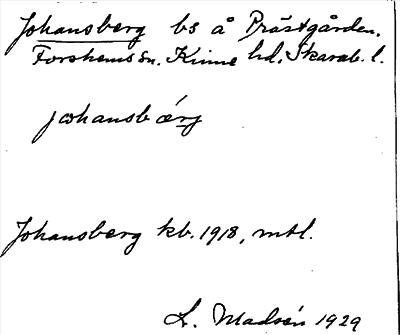 Johansberg bs å Prästgården.
Forshems sn. Kinne hd. Skarab. l.
johansbärj
Johansberg kb. 1918, mtl.
L. Madsén 1929